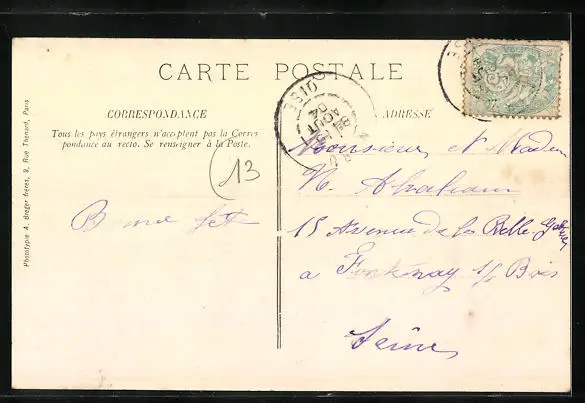 CARTE POSTALE
CORRESPONDANCE
Tous les pays étrangers n'acceptent pas la Corres-
pondance au recto. Se renseigner à la Poste.
(13
Bonne fête
ADRESSE
Monsieur et Madame
N. Abraham
15 Avenue de la Belle Gabrielle
a Fontenay s/s Bois
Seine
OISE
AOUT
04
Phototypie A. Breger frères, 9, Rue Thénard, Paris